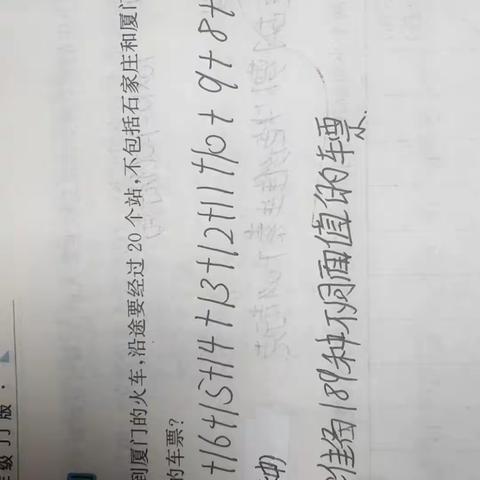 到厦门的火车,沿途要经过20个站,不包括石家庄和厦门
的车票?
+16+15+14+13+12+11+10+9+8+
准备189种不同面值的车票.
级JJ版·